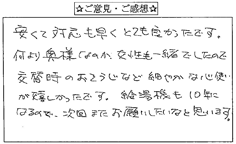 ☆ご意見・ご感想☆
安くて対応も早くとても良かったです。
何より奥様なのか、女性も一緒でしたので
交替時のおそうじなど細やかな心使い
が嬉しかったです。給湯機も10年に
なるので、次回またお願いしたいなと思います。